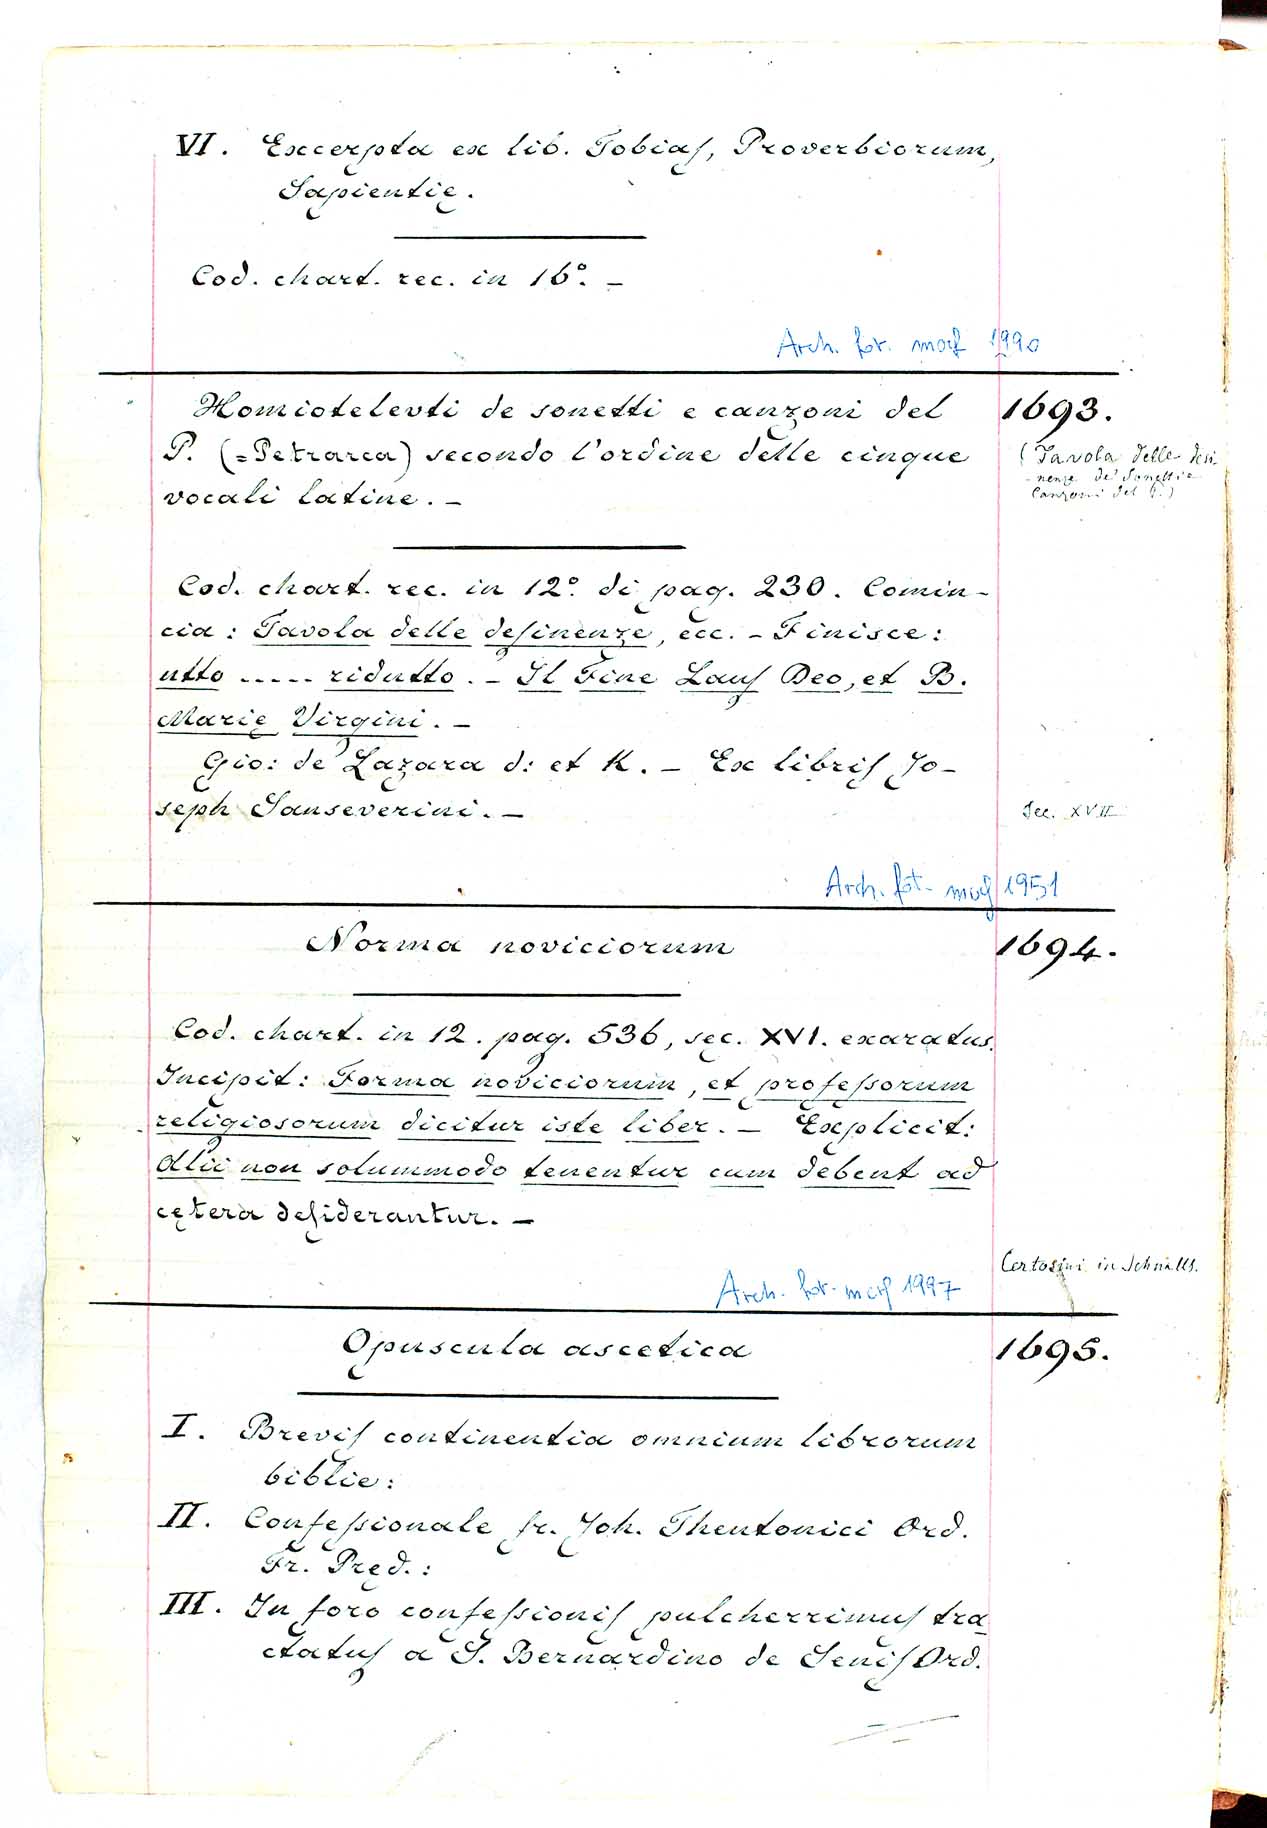 VI. Excerpta ex lib. Tobiaſ, Proverbiorum,
Sapientię.
Cod. chart. rec. in 16°. –
Arch. fot. mof 1990
Homiotelevti de sonetti e canzoni del
1693.
P. (=Petrarca) secondo l'ordine delle cinque
vocali latine. –
(Tavola delle desi-
nenze de' Sonetti e
Canzoni del P.)
Cod. chart. rec. in 12°. di pag. 230. Comin-
cia: Tavola delle deſinenze, ecc. – Finisce:
utto ..... ridutto. – Il Fine Lauſ Deo, et B.
Marię Virgini. –
Gio: de Lazara d: et K. – Ex libriſ Jo-
seph Sanseverini. –
Sec. XVII
Arch. fot. mof 1951
Norma noviciorum
1694.
Cod. chart. in 12. pag. 536, sęc. XVI. exaratus.
Incipit: Forma noviciorum, et profeſsorum
religiosorum dicitur iste liber. – Explicit:
Alii non solummodo tenentur cum debent ad
cętera deſiderantur. –
Certosini in Schnalls.
Arch. fot. mof 1997
Opuscula ascetica
1695.
I. Breviſ continentia omnium librorum
biblie:
II. Confeſsionale fr. Joh. Theutonici Ord.
Fr. Pręd.:
III. In foro confeſsioniſ pulcherrimuſ tra
ctatuſ a S. Bernardino de Seniſ Ord.